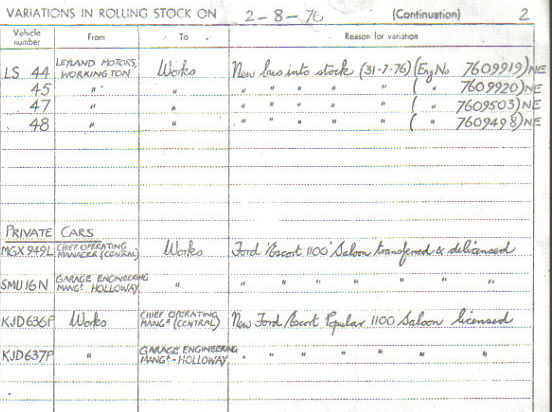 VARIATIONS IN ROLLING STOCK ON 2-8-76 (Continuation) 2
Vehicle number From To Reason for variation
LS 44 LEYLAND MOTORS, WORKINGTON Works New bus into stock (31-7-76) (Eng No 7609919) NE
45 " " " " " " " ( " 7609920) NE
47 " " " " " " " ( " 7609503) NE
48 " " " " " " " ( " 7609498) NE
PRIVATE CARS
MGX949L CHIEF OPERATING MANAGER (CENTRAL) Works Ford 'Escort 1100' Saloon transferred & delicensed
SMU16N GARAGE ENGINEERING MANGR HOLLOWAY " " " " " " " "
KJD636P Works CHIEF OPERATING MANGR (CENTRAL) New Ford Escort Popular 1100 Saloon licensed
KJD637P " GARAGE ENGINEERING MANGR - HOLLOWAY " " " " " " "